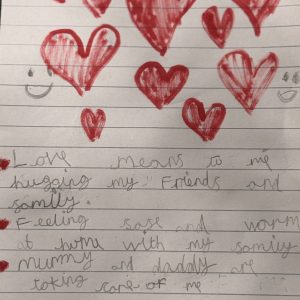 Love means to me
hugging my Friends and
family.
Feeling safe and worm
at home with my family
mummy and daddy are
taking care of me